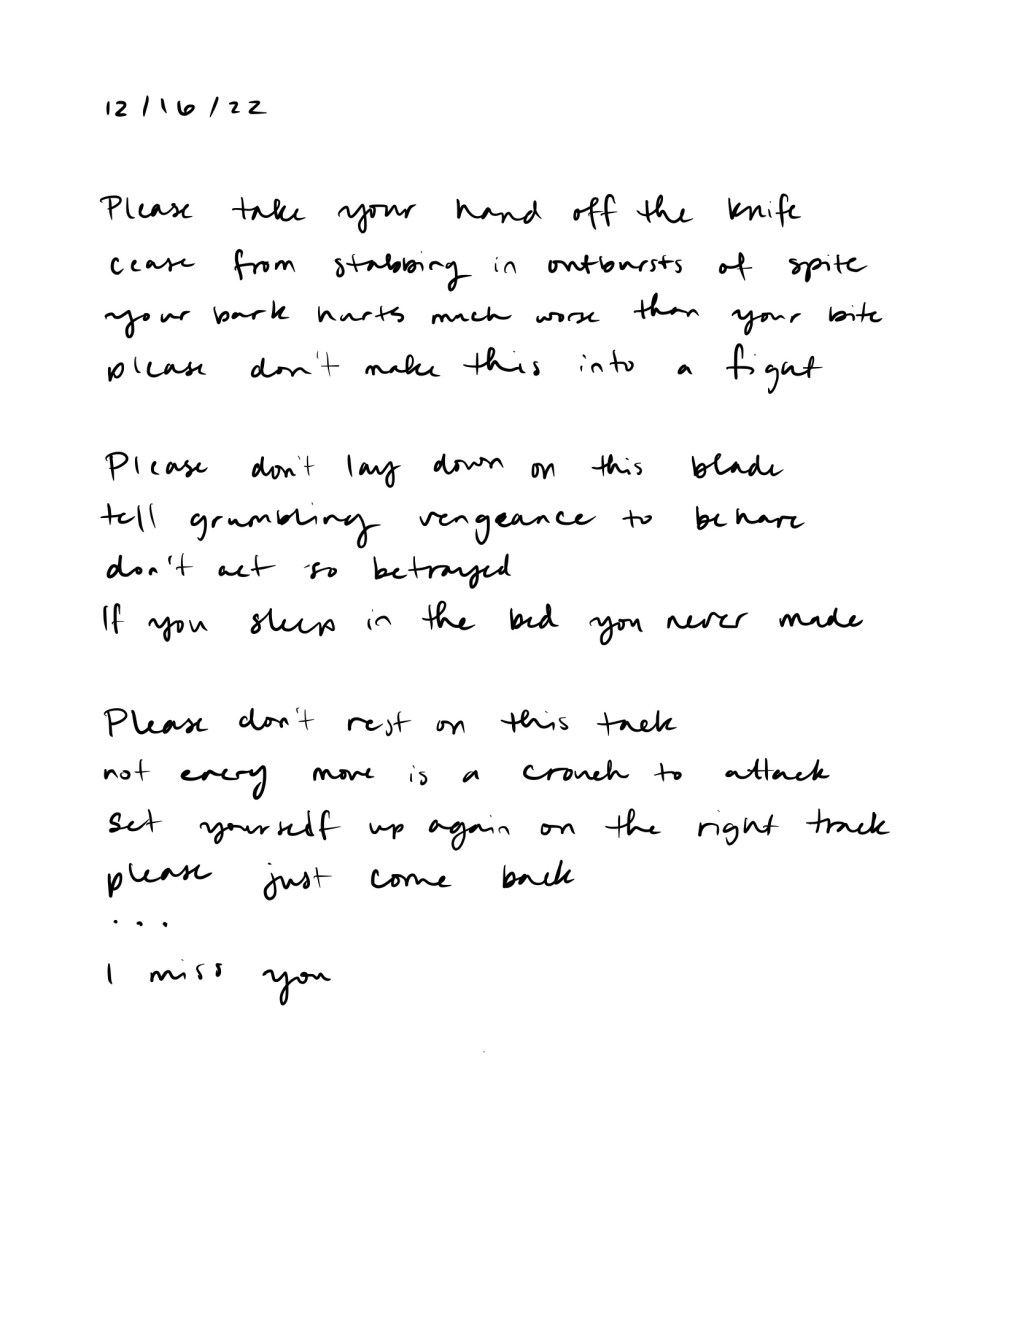 12/16/22
Please take your hand off the knife
cease from stabbing in outbursts of spite
your bark hurts much worse than your bite
please don't make this into a fight
Please don't lay down on this blade
tell grumbling vengeance to behave
don't act so betrayed
If you sleep in the bed you never made
Please don't rest on this tack
not every move is a crouch to attack
Set yourself up again on the right track
please just come back
...
I miss you